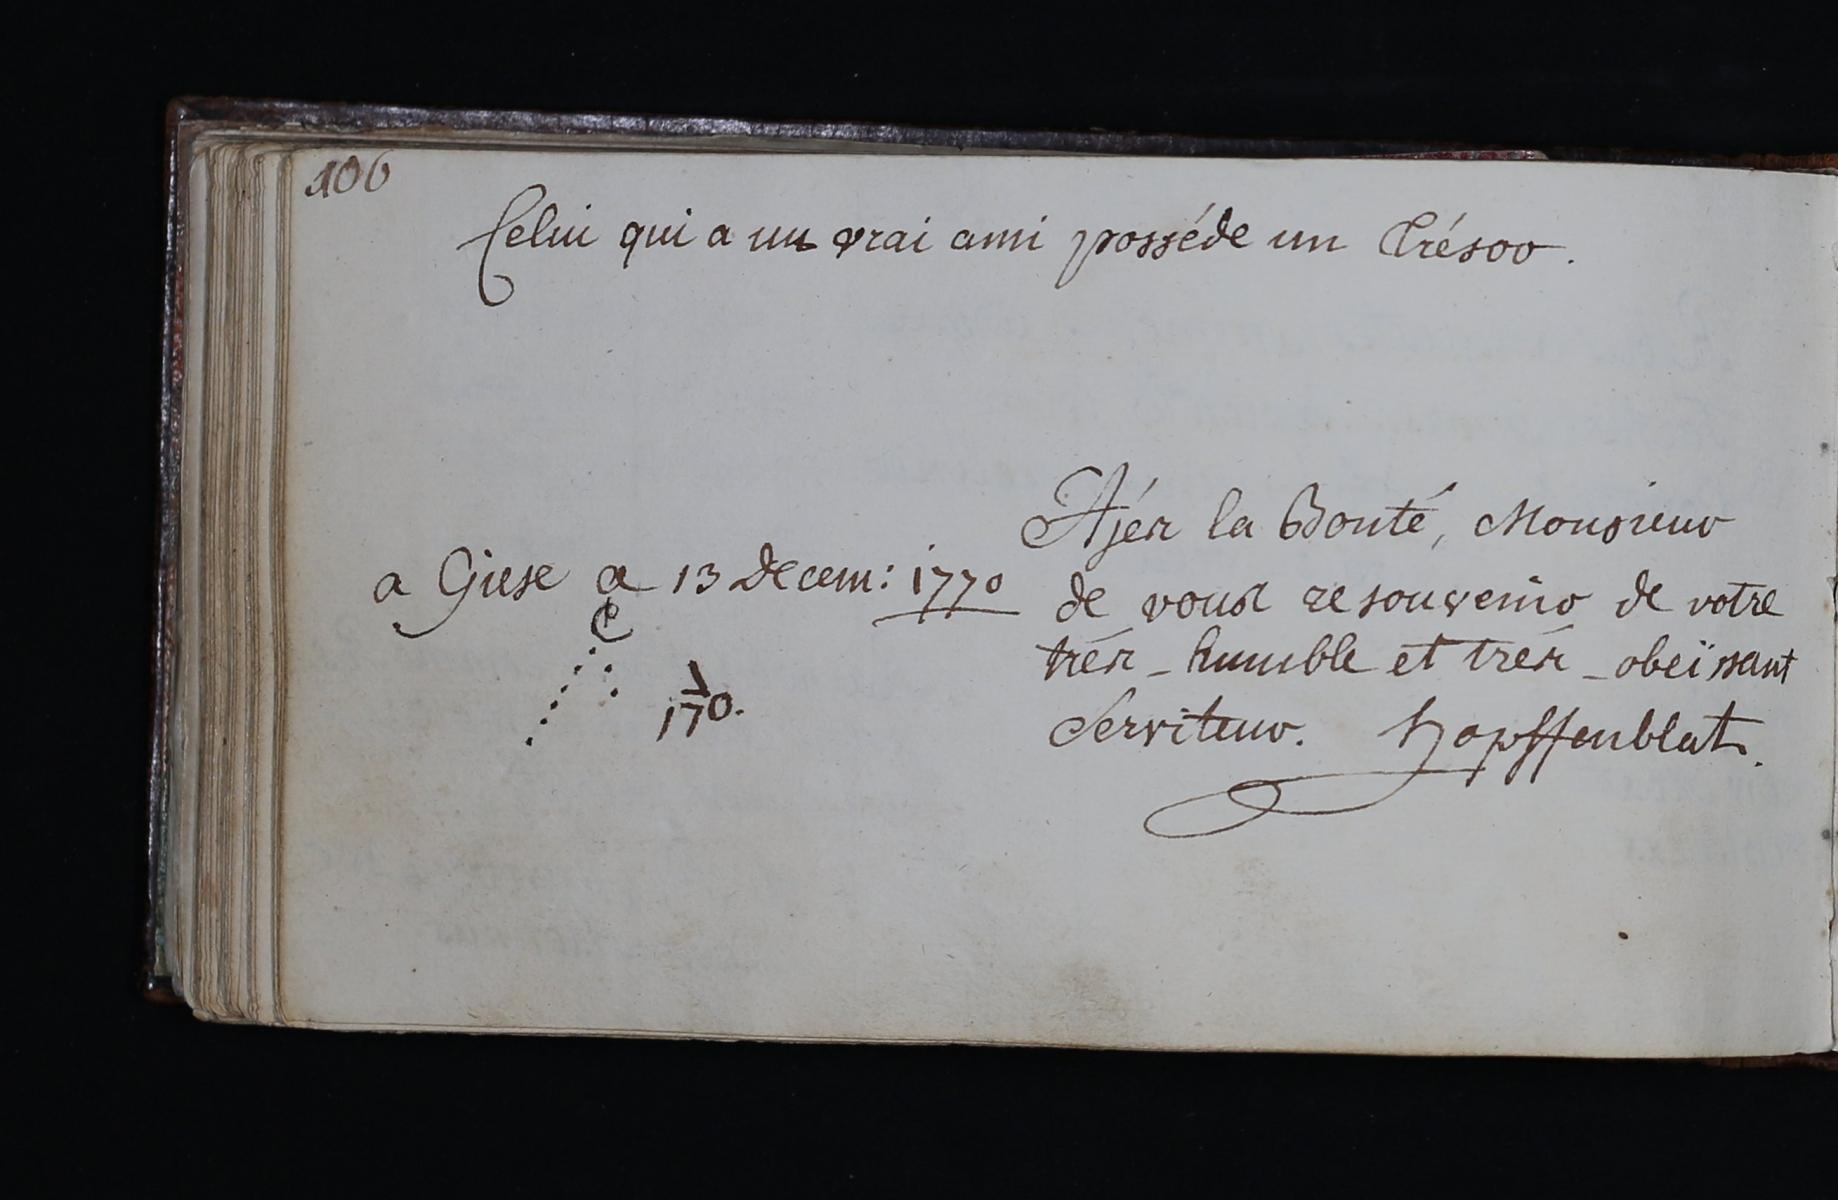 106
Celui qui a un vrai ami posséde un Trésor.
a Giese a 13 Decem: 1770
170.
Ajés la Bonté, Monsieur
de vous resouvenir de votre
trés-humble et trés-obeïssant
Serviteur. Hopffenblat.